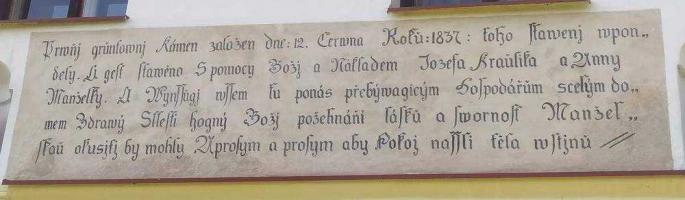 Prwňj grůntownj Kámen založen dne: 12. Cerwna Roků: 1837: toho stawenj wpon„
dely. Li gest stawěno S pomocy Božj a Nákladem Jozefa Kraůsika a Anny
Manželky. A Wynssagj wssem tu ponás přebýwagicým Hospodářům scelým do„
mem Zdrawý Sstestj hogný Božj požehnáňi lásků a swornost Manžel„
skaů okusytj by mohly Aprosym a prosym aby Pokoj nassli těla wstjnů